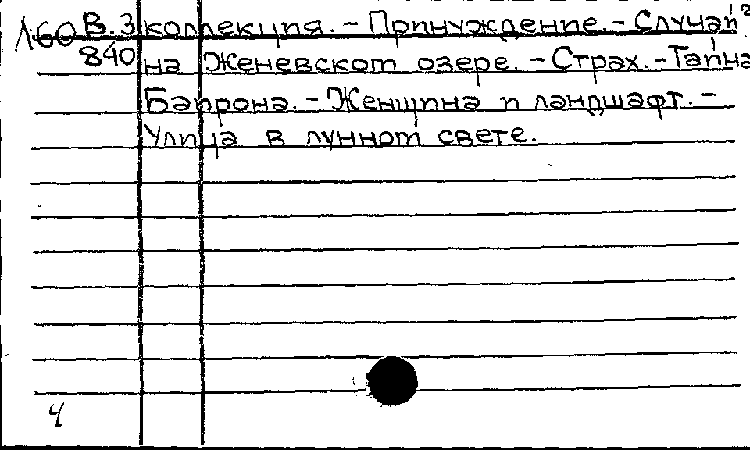 Л60 В.З коллекция. - Принуждение. - Случай
840 на Женевском озере. - Страх. - Тайна
Байрона. - Женщина и ландшафт. -
Улица в лунном свете.
4